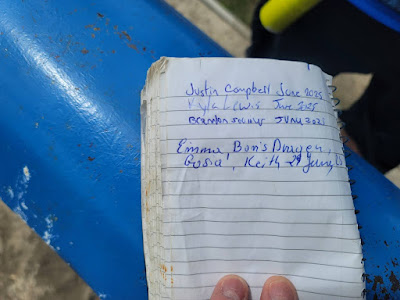 Justin Campbell June 2025
Kyla Lewis June 2025
Brandon June 2025
Emma, Bon's Dragen,
Gosia, Keith 29 June 25